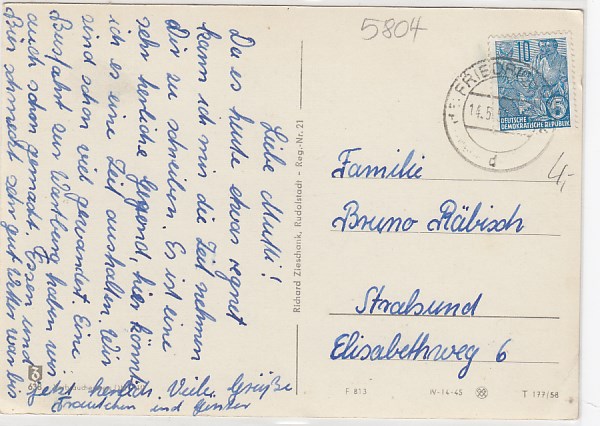 5804
10
5
DEUTSCHE
DEMOKRATISCHE REPUBLIK
FRIEDRICH
14.5.
d
Liebe Mutti!
Da es heute etwas regnet
kann ich mir die Zeit nehmen
Dir zu schreiben. Es ist eine
sehr herrliche Gegend, hier könnte
ich es eine Zeit aushalten. Wir
sind schon viel gewandert. Eine
Busfahrt zur Wartburg haben wir
auch schon gemacht. Essen und
Bier schmeckt sehr gut Wetter war bis
jetzt herrlich. Viele Grüße
und Günter
Richard Zieschank, Rudolstadt - Reg.-Nr. 21
Familie
Bruno Räbisch
Stralsund
Elisabethweg 6
4,-
F 813
IV-14-45
T 177/58